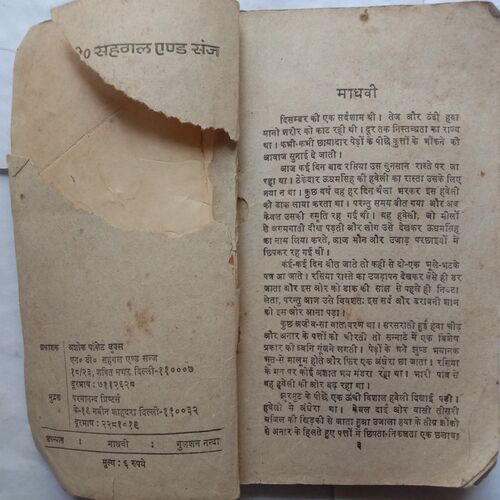 ए० सहगल एण्ड संज
प्रकाशक
अशोक पाकेट बुक्स
एन० डी० सहगल एण्ड सन्ज
१८/२३, शक्ति नगर दिल्ली-११०००७
दूरभाष : ७११२६२७
मुद्रक
परमानन्द प्रिण्टर्स
के-१६ नवीन शाहदरा दिल्ली-११००३२
दूरभाष : २२८१०१६
उपन्यास : माधवी : गुलशन नन्दा
मूल्य : ६ रुपये
माधवी
दिसम्बर की एक सर्द शाम थी। तेज और ठंडी हवा
मानो शरीर को काट रही थी। दूर तक निस्तब्धता का राज्य
था। कभी-कभी छायादार पेड़ों के पीछे कुत्तों के भौंकने की
आवाज सुनाई दे जाती।
आज कई दिन बाद रसिया उस सुनसान रास्ते पर जा
रहा था। ठेकेदार ऊधमसिंह की हवेली का रास्ता उसके लिए
नया न था। कुछ वर्ष वह हर दिन थैला भरकर इस हवेली
की डाक लाया करता था। परन्तु समय बीत गया और अब
केवल उसकी स्मृति रह गई थी। यह हवेली, जो मीलों
से जगमगाती दीख पड़ती और लोग उसे देखकर ऊधमसिंह
का नाम लिया करते, आज मौन और उजाड़ परछाइयों में
छिपकर रह गई थी।
कई-कई दिन बीत जाते तो कहीं से दो-एक भूले-भटके
पत्र आ जाते। रसिया रास्ते का उजड़ापन देखकर वैसे ही डर
जाता और इस ओर को डाक की सांझ से पहले ही निबटा
लेता, परन्तु आज उसे विवशतः इस सर्द और डरावनी शाम
को इस ओर आना पड़ा।
कुछ अजीब-सा वातावरण था। सरसराती हुई हवा चीड़
और अनार के पत्तों को चीरती तो सन्नाटे में एक विशेष
प्रकार की ध्वनि गूंजने लगती। पेड़ों के घने झुण्ड भयानक
भूत-से मालूम होते और फिर एक अंधेरा छा जाता। रसिया
के मन पर कोई अज्ञात भय मंडरा रहा था। भारी पांव से
वह हवेली की ओर बढ़ रहा था।
झुरमुट के पीछे एक ऊंची विशाल हवेली दिखाई दी।
हवेली में अंधेरा था। केवल दाईं ओर वाली तीसरी
मंजिल की खिड़की से आता हुआ उजाला हवा के तीव्र झोंको
से अनार के हिलते हुए पत्तों में छिपता-निकलता एक छलावा
३